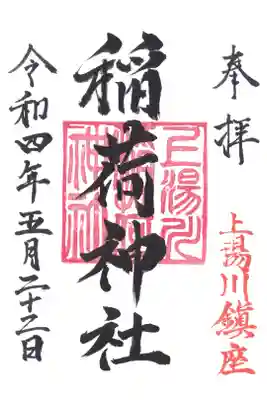 奉拝
上湯川鎮座
稲荷神社
令和四年五月二十二日